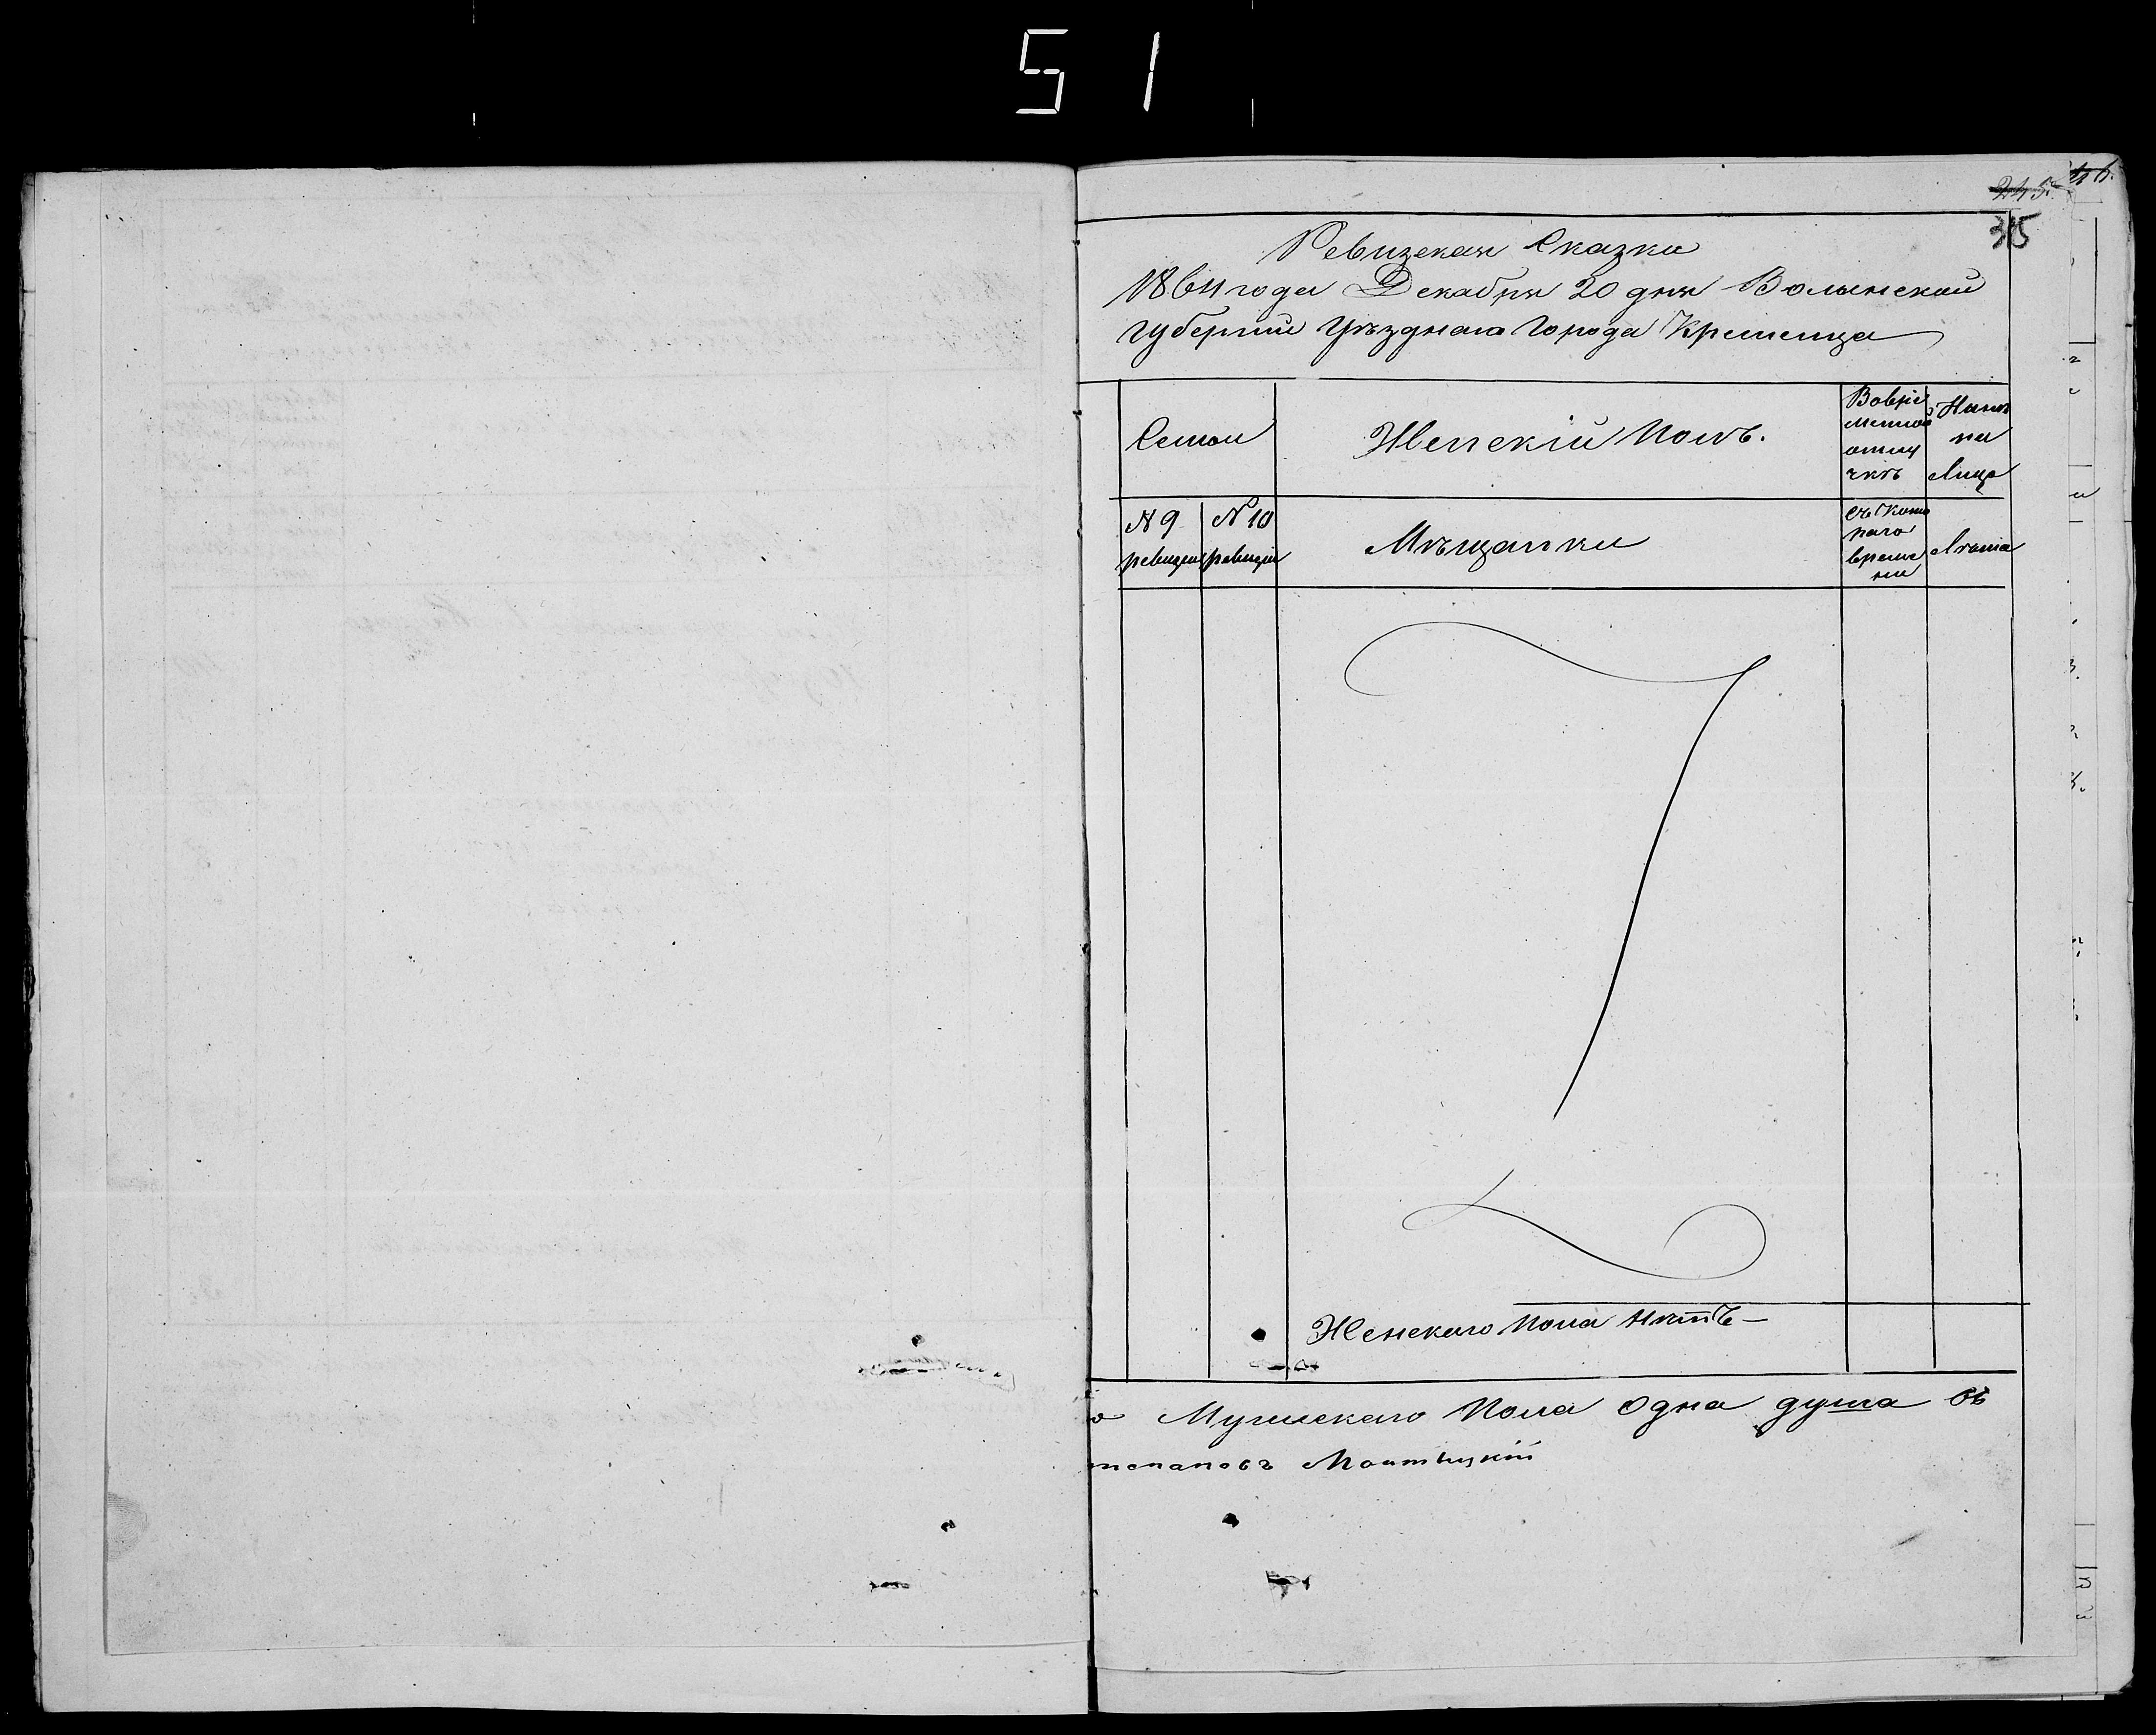 51
245.
315
Ревизская Сказка
1864 года Декабря 20 дня Волынской
губернии уѣзднаго города Кременца
Семьи
Женский Полъ.
Вовре
менной
отлу
чкѣ
Нынѣ
на
Лицо
№ 9
ревизии
№ 10
ревизии
Мѣщанки
съ кото
раго
време
ни
Лѣта
Женскаго пола нѣтъ —
о Мужескаго пола одна душа въ
тепановъ